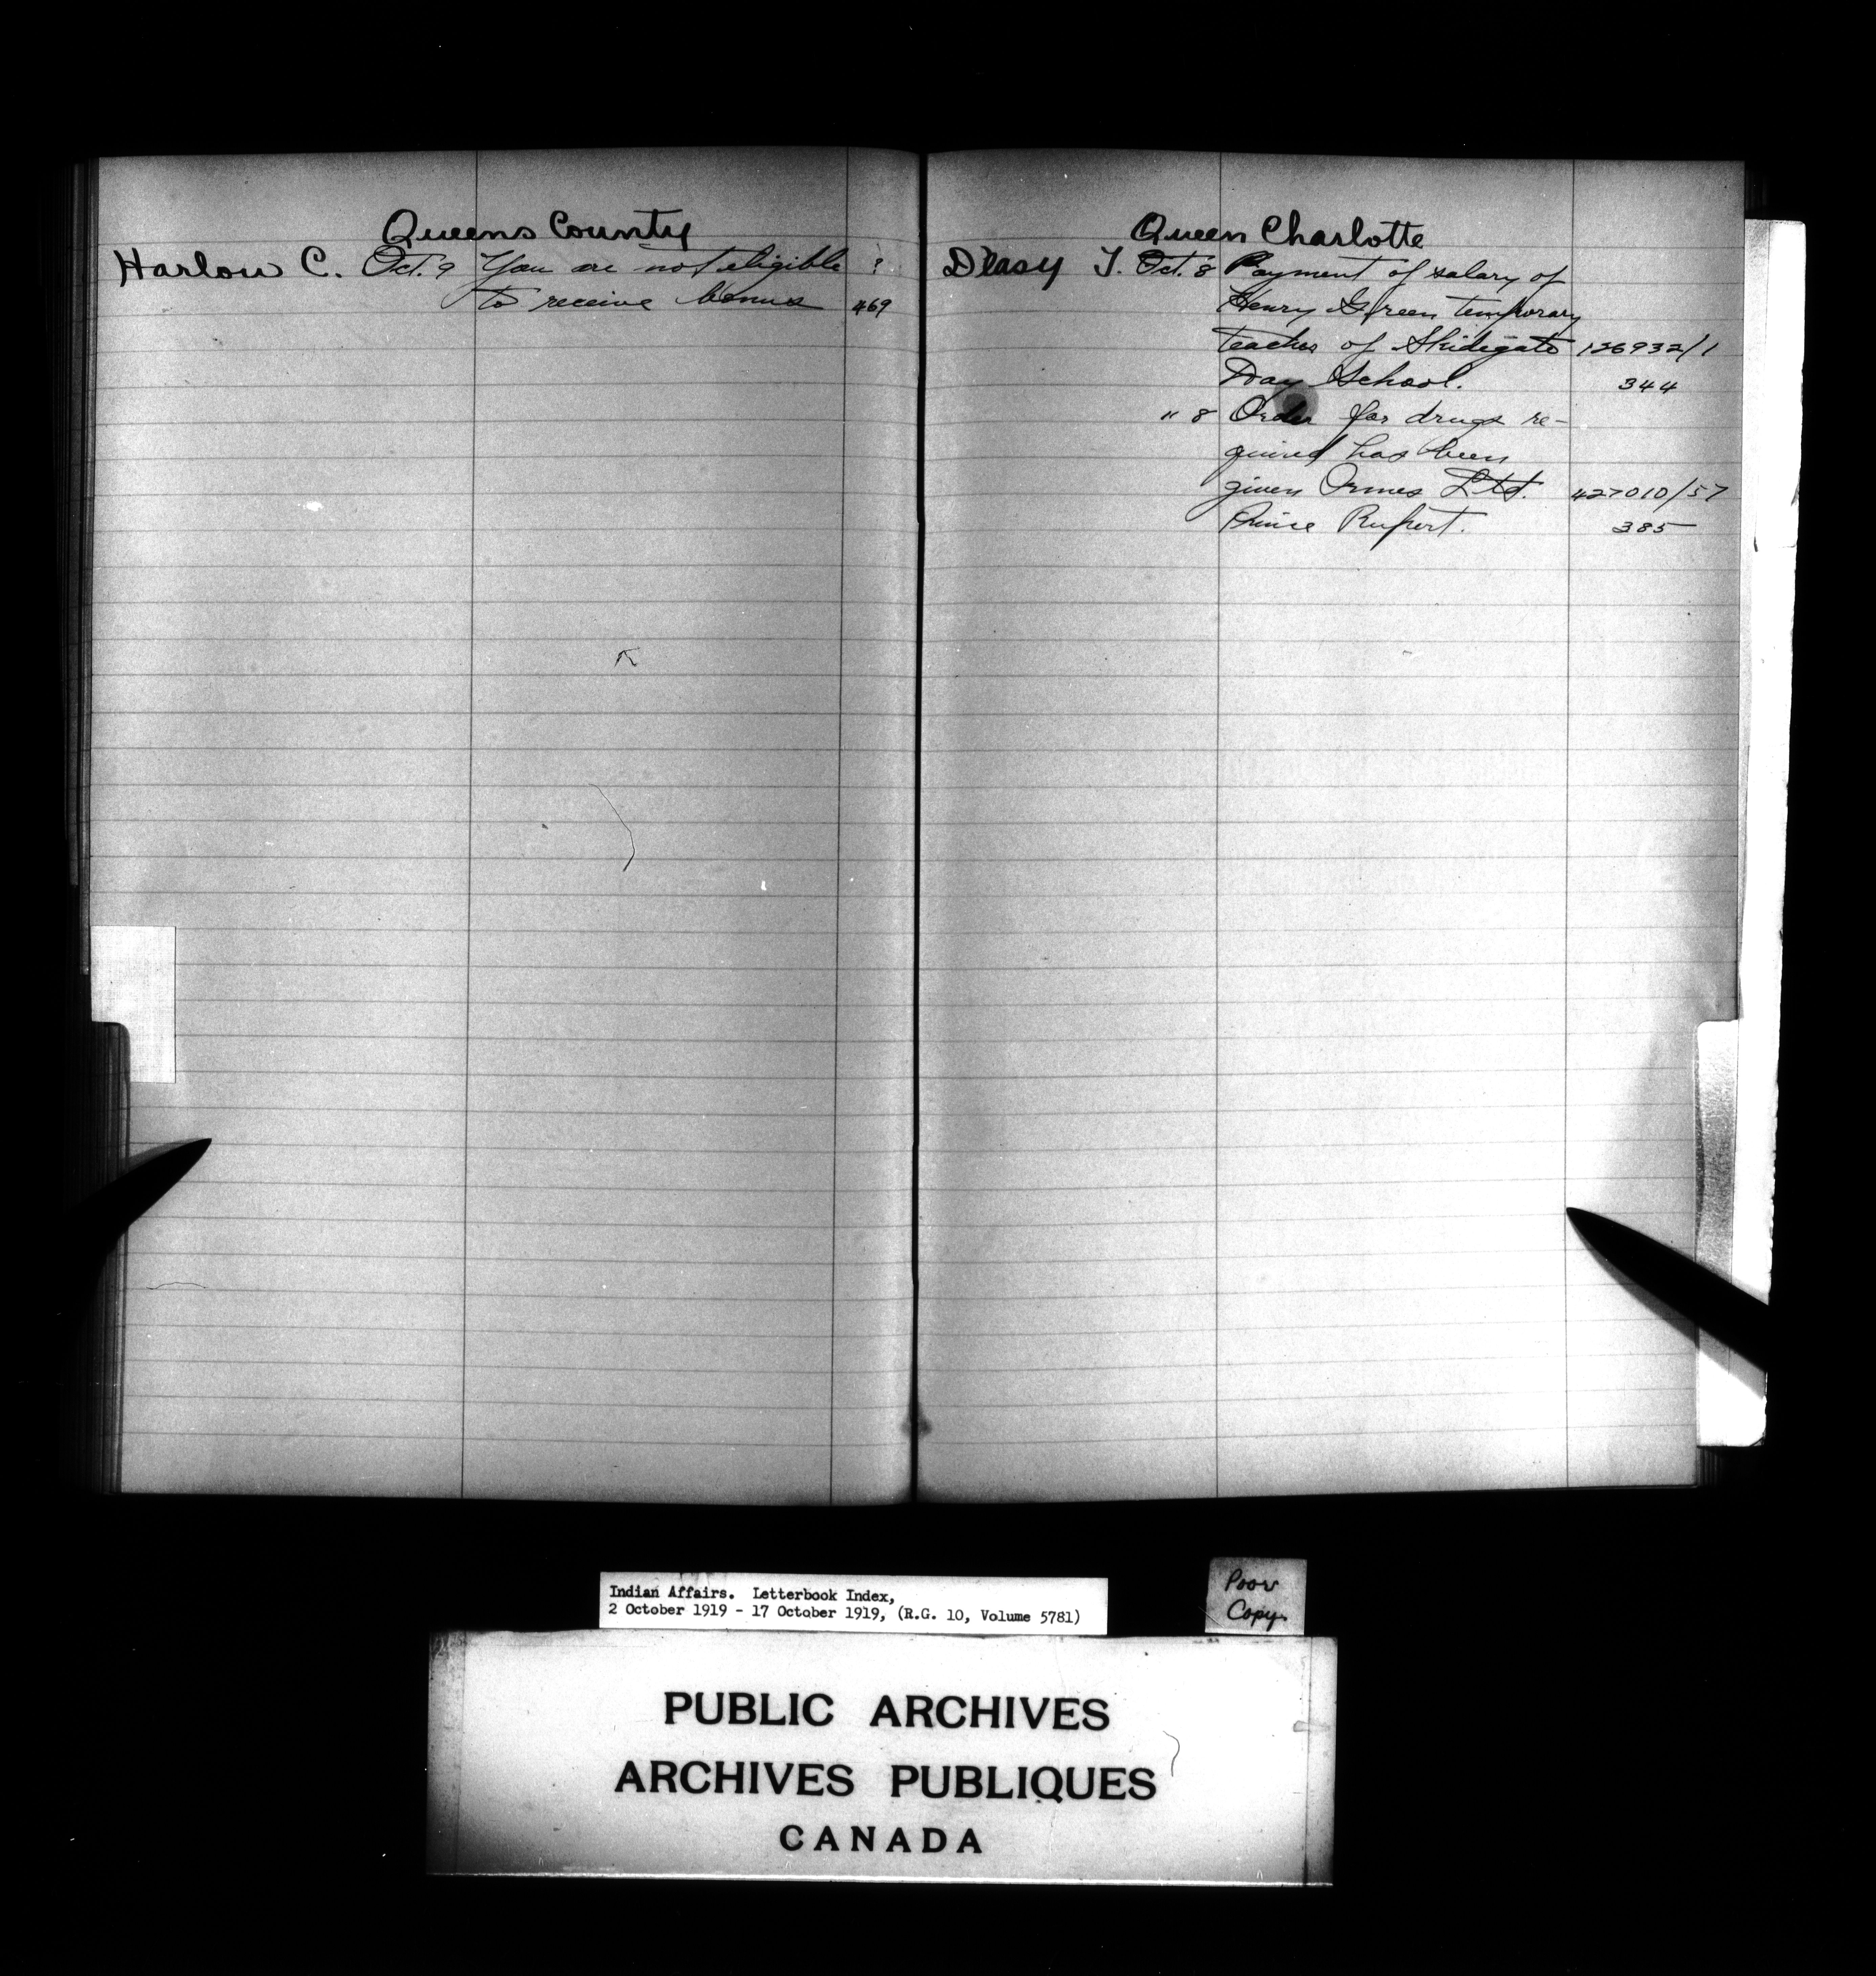 Queens County
Harlow C. Oct. 9 You are not eligible ?
to receive bonus 469
Queen Charlotte
Deasy T. Oct. 8 Payment of salary of
Henry Green temporary
teacher of Skidegate 126932/1
Day School. 344
" 8 Order for drugs re-
quired has been
given Ormes Ltd. 427010/57
Prince Rupert. 385
Indian Affairs. Letterbook Index,
2 October 1919 - 17 October 1919, (R.G. 10, Volume 5781)
Poor
Copy.
PUBLIC ARCHIVES
ARCHIVES PUBLIQUES
CANADA